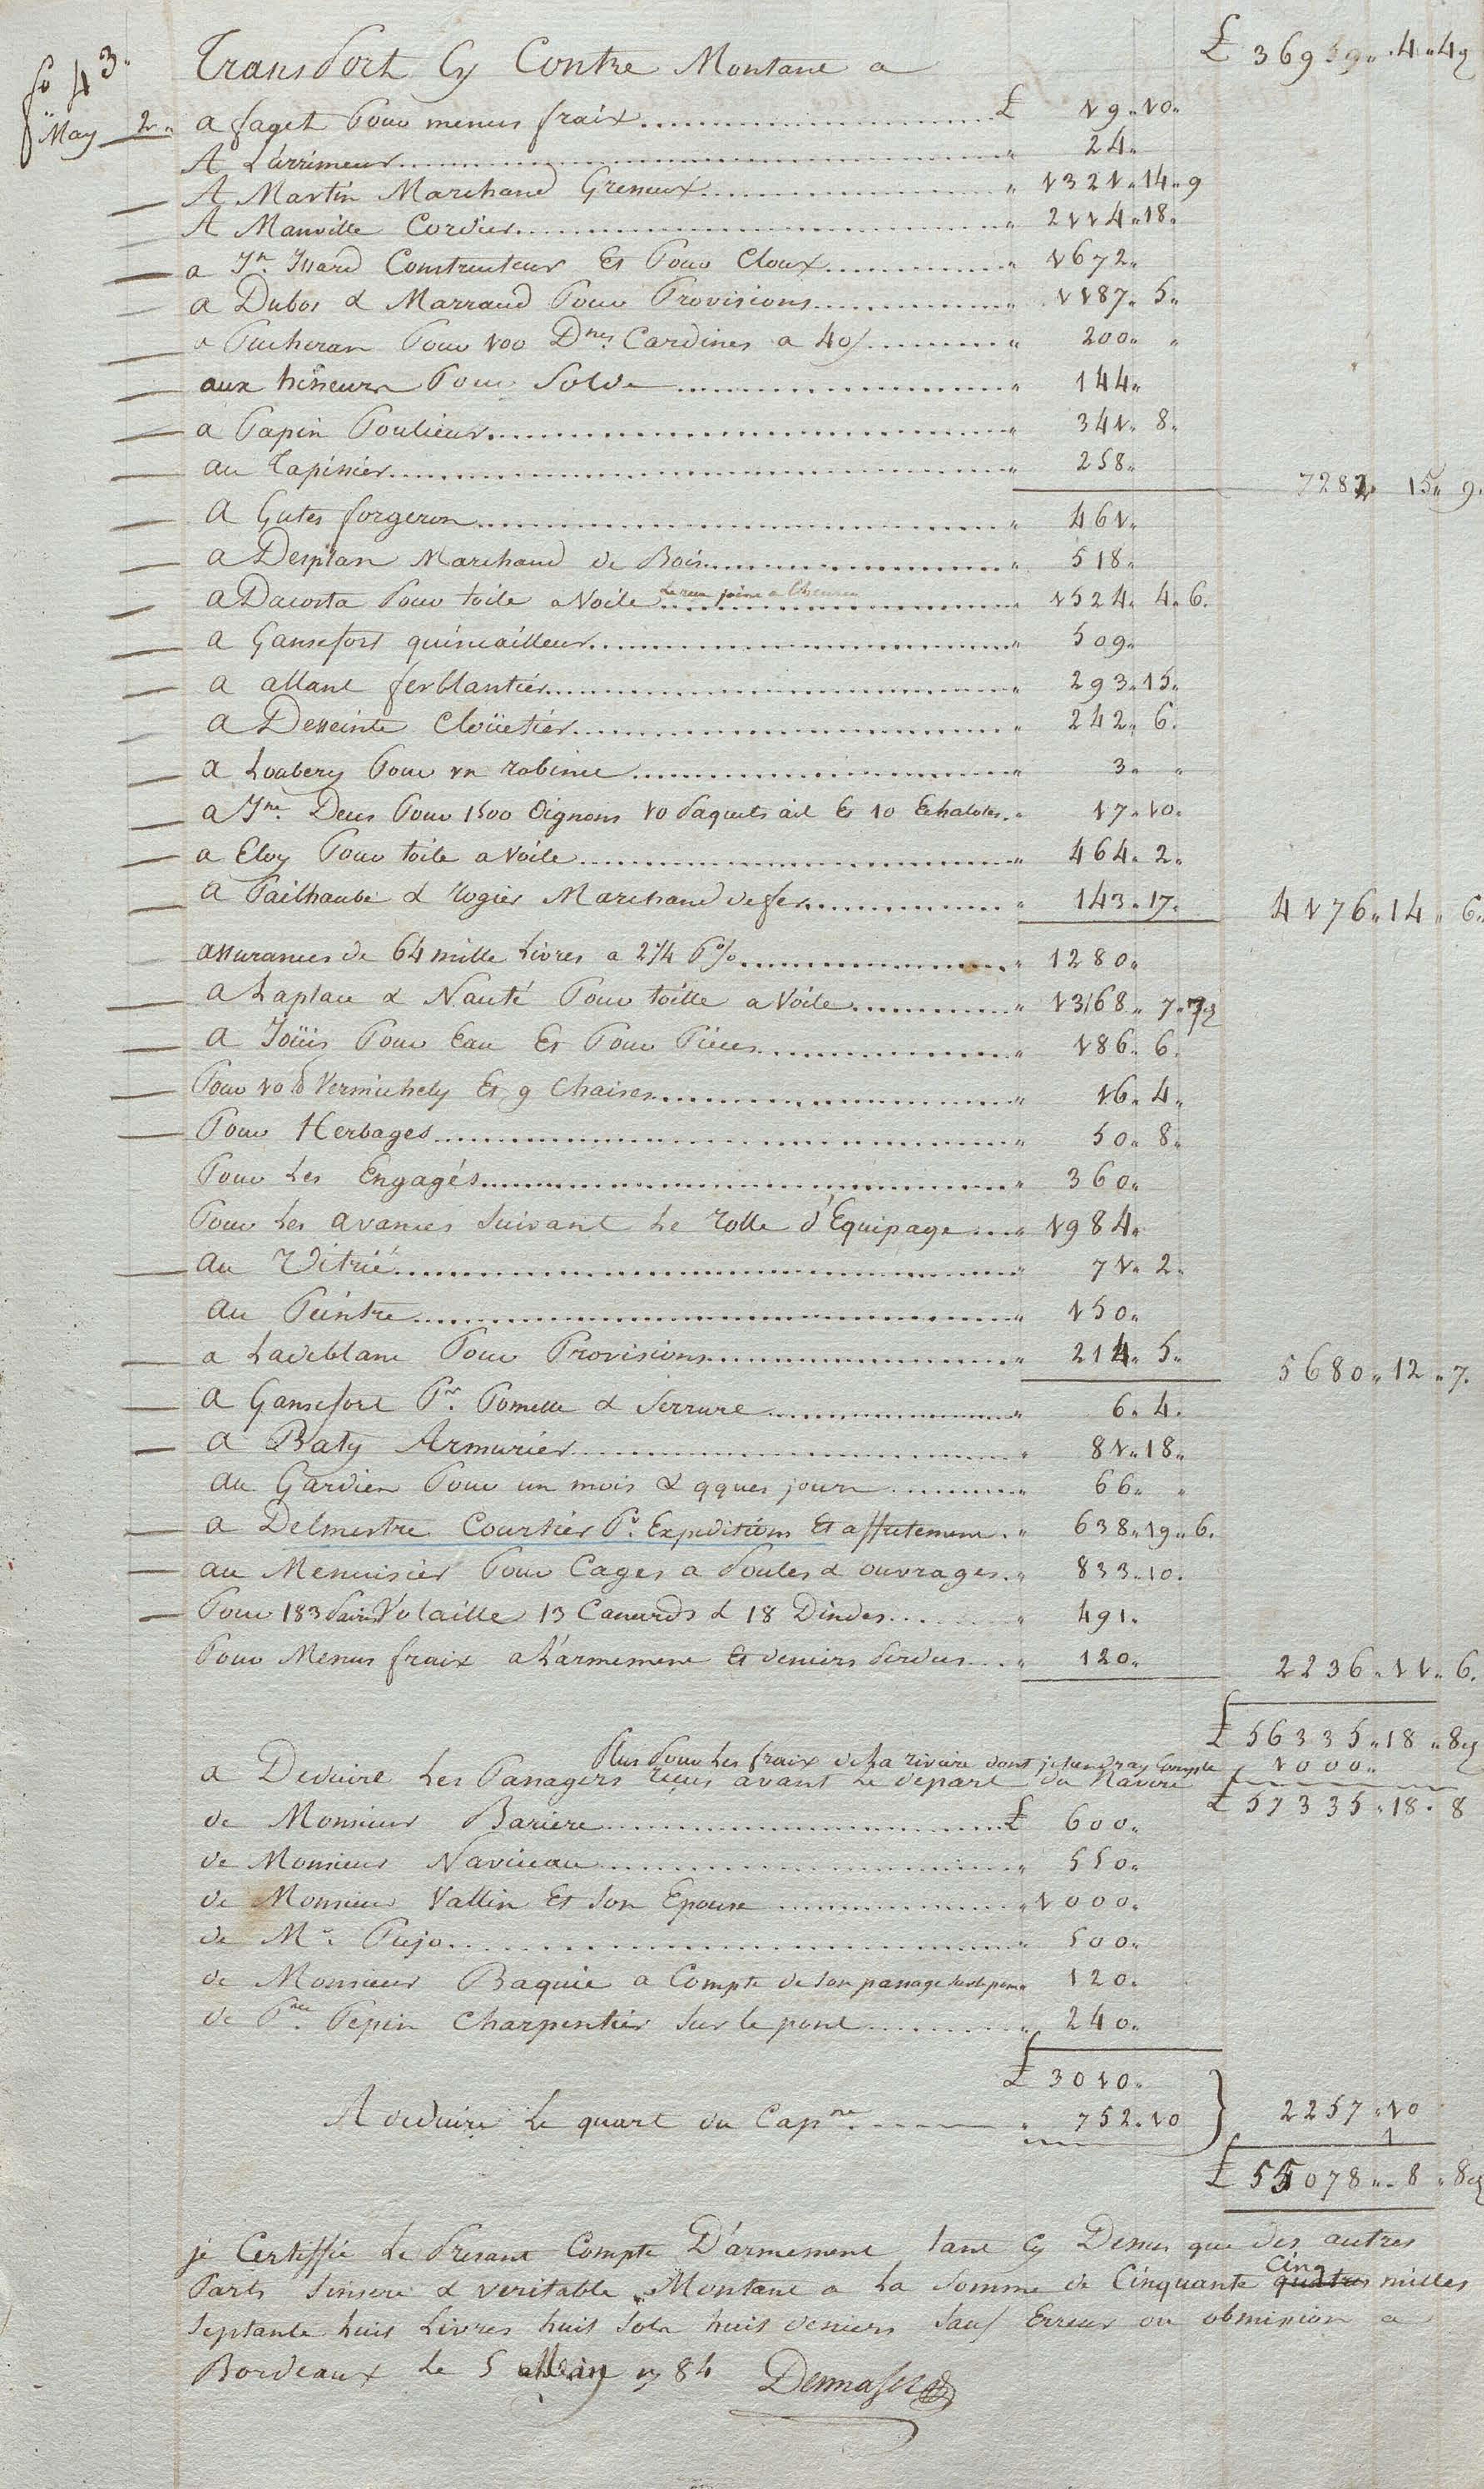 fo 43.
Transport Cy Contre Montant a £ 36959. 4. 4 9
May 2. a faget Pour menus fraix £ 19. 10.
A Larrimeur 24.
A Martin Marchand Greneux 1321. 14. 9
A Manville Cordier 2114. 18.
a Jn. Issard Constructeur Et Pour Cloux 1672.
a Dubos & Marraud Pour Provisions 1187. 5.
a Pucheran Pour 100 Dnes. Cardines a 40/ 200. "
aux hisseurs Pour Solde 144.
a Papin Poulieur 341. 8.
au Tapissier 258. 7282. 15. 9.
A Gutes forgeron 461.
a Desplan Marchand de Bois 518.
a Dacosta Pour toile a Voile 1524. 4. 6.
a Gansefort quincailleur 509.
a allant ferblantier 293. 15.
a Desseinte Cloüetier 242. 6.
a Loubery Pour un robinet 3. "
a Jne. Deces Pour 1500 Oignons 10 Paquets ail Et 10 Echalotes. 17. 10.
a Eloy Pour toile a Voile 464. 2.
a Pailhaube & rogier Marchand de fer 143. 17. 4176. 14. 6.
assurances de 64 mille Livres a 2 1/4 P% 1280.
a Laplace & Nauté Pour toille a Voile 1368. 7. 7
a Joüis Pour Eau Et Pour Pieces 186. 6.
Pour 10 lb Vermichely Et 9 Chaises 16. 4.
Pour Herbages 50. 8.
Pour Les Engagés 360.
Pour Les avances Suivant Le rolle d'Equipage 1984.
au Vitrié 71. 2.
au Peintre 150.
a Ladeblanc Pour Provisions 214. 5. 5680. 12. 7.
a Gansefort Pr. Pomelle & Serrure 6. 4.
a Baty Armurier 81. 18.
au Gardien Pour un mois & qques jours 66. "
a Delmestre Courtier Pr. Expeditions Et affretement. 638. 19. 6.
au Menuisier Pour Cages a Poules & ouvrages. 833. 10.
Pour 183 Paires Volaille 13 Canards & 18 Dindes 491.
Pour Menus fraix a L'armement Et deniers Perdus 120. 2236. 11. 6.
£ 56335. 18. 8
Plus Pour Les fraix de La riviere dont je tiendray Compte 1000.
a Deduire Les Passagers reçus avant Le depart du Navire £ 57335. 18. 8
de Monsieur Bariere £ 600.
de Monsieur Naviceau 550.
de Monsieur Vallin Et Son Epouse 1000.
de Mr. Pujo 500.
de Monsieur Baquié a Compte de Son passage sur le pont 120.
de Pre. Pepin Charpentier Sur le pont 240.
£ 3010.
A deduire Le quart du Capne. 752. 10 } 2257. 10
£ 55078. 8. 8
je Certiffie Le Present Compte D'armement tant Cy Dessus que des autres
Parts Sinsere & veritable Montant a La Somme de Cinquante Cinq quatres milles
Septante huit Livres huit Sols huit deniers Sauf Erreur ou obmission a
Bordeaux Le 5 May 1784